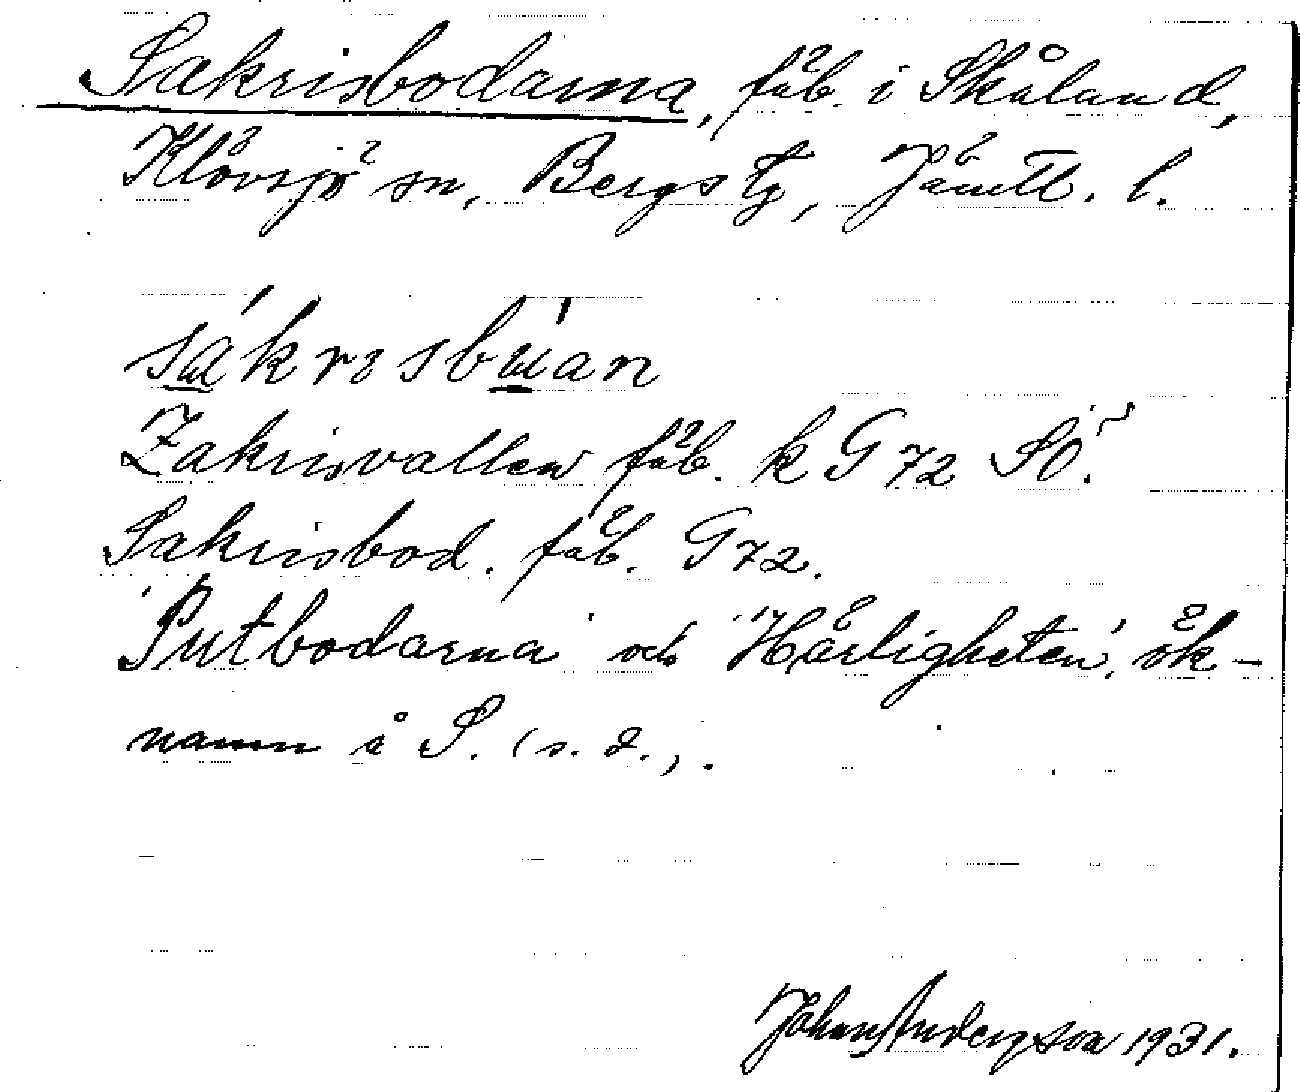 Sakrisbodarna, fäb. i Skålan d,
Klövsjö sn, Bergs tg, Jämtl. l.
sákrɪsbu̇́an
Zakrisvallen fäb. k G 72 SÖ.
Sakrisbod. fäb. G 72.
"Putbodarna" och "Härligheten", ök-
namn å S. (s. d.).
Johan Anderson 1931.